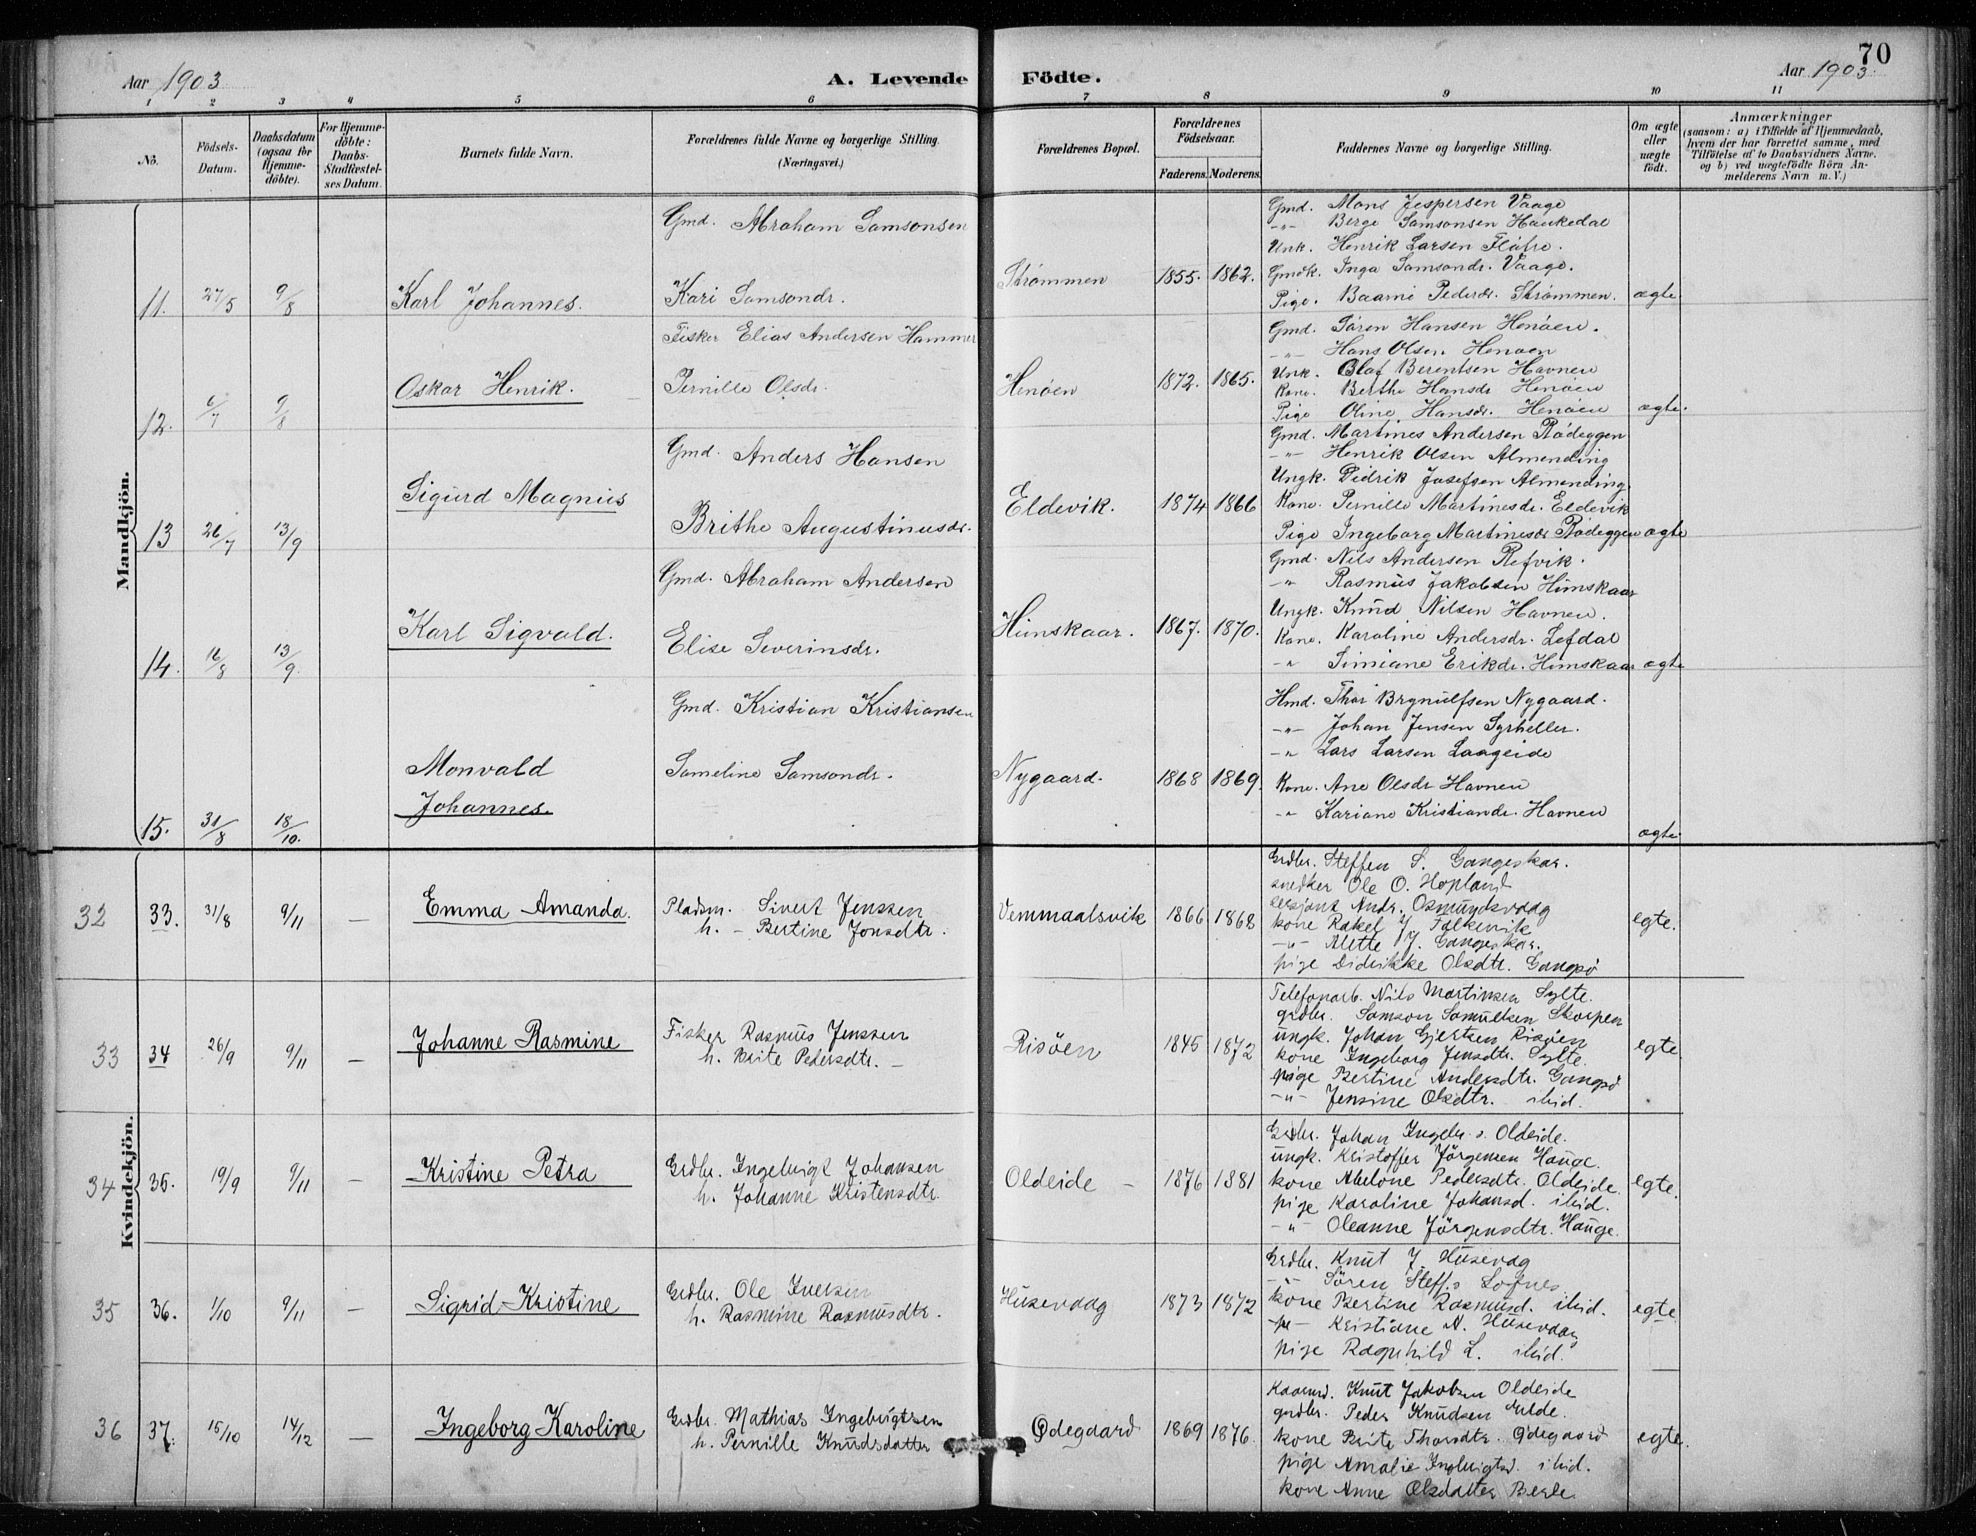 70
Aar 1903 A. Levende Födte. Aar 1903.
1 2 3 4 5 6 7 8 9 10 11
No. Födsels-Datum. Daabsdatum (ogsaa for Hjemme-döbte). For Hjemme-döbte: Daabs-Stadfæstel-ses Datum. Barnets fulde Navn. Forældrenes fulde Navne og borgerlige Stilling. (Næringsvei.) Forældrenes Bopæl. Forældrenes Födselsaar. Faderens. Moderens. Faddernes Navne og borgerlige Stilling. Om ægte eller uægte födt. Anmærkninger (saasom: a) i Tilfælde af Hjemmedaab, hvem der har forrettet samme, med Tilföielse af to Daabsvidners Navne, og b) ved uægtefödte Börn An-melderens Navn m. V.)
Mandkjön.
11. 27/5 9/8 Karl Johannes.
Gmd. Abraham Samsonsen
Kari Samsondr.
Strømmen 1855. 1862.
Gmd. Mons Jespersen Vaage
-"- Berge Samsonsen Haukedal
Unk. Henrik Larsen Flåfre.
Gmdk. Inga Samsondr. Vaage.
Pige. Baarni Pedersdr. Strømmen. ægte
12. 6/7 9/8 Oskar Henrik.
Fisker Elias Andersen Hammer
Pernille Olsdr.
Henøen 1872. 1865.
Gmd. Søren Hansen Henøen.
-"- Hans Olsen Henøen
Unk. Olaf Berentsen Havnen
Kone. Berthe Hansdr Henøen
Pige Oline Hansdr. Henøen ægte.
13 26/7 13/9 Sigurd Magnus
Gmd. Anders Hansen
Brithe Augustinusdr.
Eldevik. 1874 1866
Gmd. Martines Andersen Rødeggen
-"- Henrik Olsen Almending
Ungk. Didrik Josefsen Almending
Kone. Pernille Martinesdr. Eldevik
Pige Ingeborg Martinesdr Rødeggen ægte
14. 16/8 13/9. Karl Sigvald.
Gmd. Abraham Andersen
Elise Severinsdr.
Himskaar. 1867. 1870.
Gmd. Nils Andersen Refvik.
-"- Rasmus Jakobsen Himskaar
Ungk. Knud Nilsen Havnen.
Kone. Karoline Andersdr. Lefdal
-"- Simiane Erikdr. Himskaar ægte
15. 31/8 18/10. Monvald
Johannes.
Gmd. Kristian Kristiansen
Sameline Samsondr.
Nygaard. 1868 1869.
Hmd. Thor Brynulfsen Nygaard.
-"- Johan Jensen Syrheller.
-"- Lars Larsen Laageide
Kone. Ane Olsdr Havnen
-"- Kariane Kristiandr. Havnen
ægte
Kvindekjön.
32 33. 31/8 9/11 — Emma Amanda.
Pladsm. Sivert Jenssen
h. - Bertine Jonsdtr.
Vemmaalsvik 1866 1868
Grdbr. Steffen S. Gangeskar.
snedker Ole O. Hopland
sersjant Andr. Osmundsvaag
kone Rakel J. Falkevik
-"- Alette J. Gangeskar.
pige Didrikke Olsdtr. Gangsø
egte.
33 34 26/9 9/11 — Johanne Rasmine
Fisker Rasmus Jenssen
h. Brite Pedersdtr. —
Risøen 1845 1872
Telefonarb. Nils Martinsen Sylte.
grdbr. Samson Samuelsen Skorpen
ungk. Johan Gjertsen Risøen
kone Ingeborg Jensdtr. Sylte.
pige Bertine Andersdtr. Gangsø
-"- Jensine Olsdtr. ibid.
egte.
34 35. 19/9 9/11 — Kristine Petra
Grdbr. Ingebrigt Johansen
h. Johanne Kristensdtr.
Oldeide — 1876 1881
Grdbr. Johan Ingebr. s. Oldeide.
ungk. Kristoffer Jörgensen Hauge.
kone Abelone Pedersdtr. Oldeide.
pige Karoline Johansd. ibid.
-"- Oleanne Jörgensdtr. Hauge.
egte.
35 36. 1/10 9/11 — Sigrid Kristine
Grdbr. Ole Iversen
h. Rasmine Rasmusdtr.
Husevaag 1873 1872
Grdbr. Knut J. Husevaag
-"- Søren Steff.s Lofnes
kone Bertine Rasmusd. ibid.
-"- Kristiane A. Husevaag
pige Ragnhild L. ibid.
egte.
36 37. 15/10 14/12 — Ingeborg Karoline
Grdbr. Mathias Ingebrigtsen
h. Pernille Knudsdatter
Ødegaard 1869 1876.
Kaarmd. Knut Jakobsen Oldeide
grdbr. Peder Knudsen Elde.
kone Brite Thorsdtr. Ødegaard
pige Amalie Ingebrigtsd. ibid.
kone Anne Olsdatter Berle.
egte.